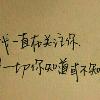 我一直在关注你
一切你知道或不知